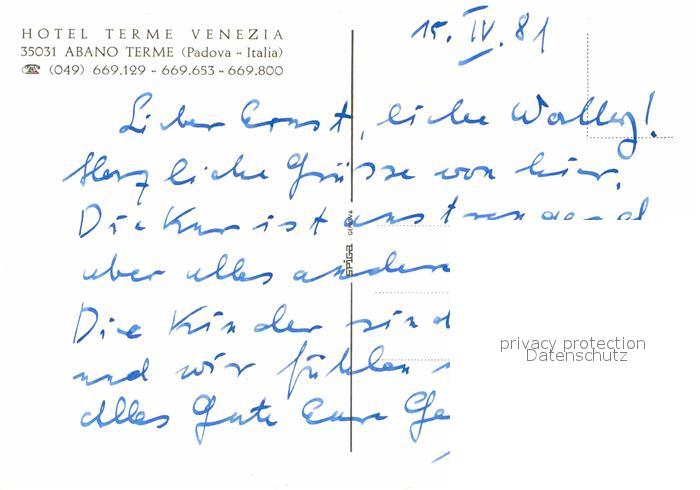 HOTEL TERME VENEZIA
35031 ABANO TERME (Padova - Italia)
☎ (049) 669.129 - 669.653 - 669.800
15. IV. 81
Lieber Ernst, liebe
Herzliche Grüsse von hier.
Die Kur ist anstrengend
aber alles andere
Die Kinder sind
und wir fühlen
Alles Gute Eure Ge
privacy protection
Datenschutz